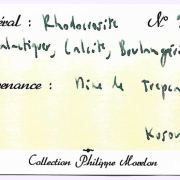 éral : Rhodocrosite N°
alactiques, Calcite, Boulangéri
enance : Mine de Trepca
Kosov
Collection Philippe Morelon